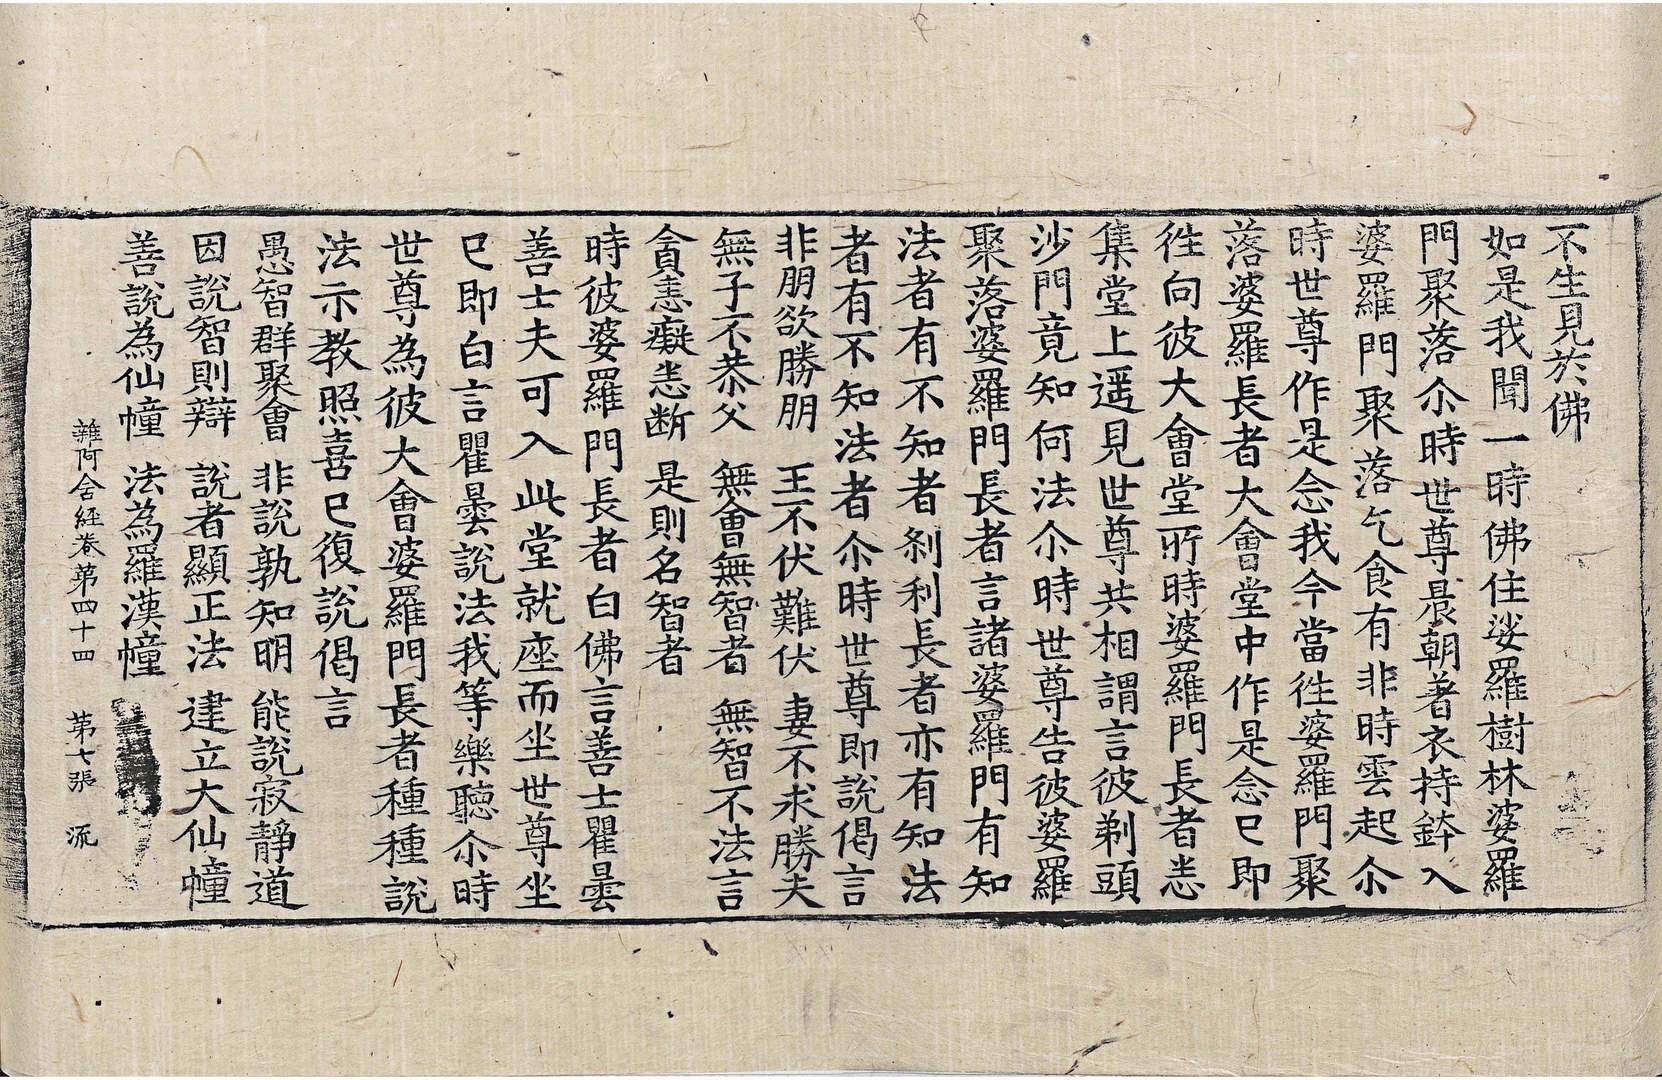 不生見於佛
如是我聞一時佛住娑羅樹林婆羅
門聚落尒時世尊晨朝著衣持鉢入
婆羅門聚落乞食有非時雲起尒
時世尊作是念我今當徃婆羅門聚
落婆羅長者大會堂中作是念已即
徃向彼大會堂所時婆羅門長者悉
集堂上遥見世尊共相謂言彼剃頭
沙門竟知何法尒時世尊告彼婆羅
聚落婆羅門長者言諸婆羅門有知
法者有不知者刹利長者亦有知法
者有不知法者尒時世尊即說偈言
非朋欲勝朋　王不伏難伏　妻不求勝夫
無子不恭父　無會無智者　無智不法言
貪恚癡悉断　是則名智者
時彼婆羅門長者白佛言善士瞿曇
善士夫可入此堂就座而坐世尊坐
已即白言瞿曇說法我等樂聽尒時
世尊為彼大會婆羅門長者種種說
法示教照喜已復說偈言
愚智群聚會　非說孰知明　能說寂靜道
因說智則辯　說者顯正法　建立大仙幢
善說為仙幢　法為羅漢幢
雜阿含經卷第四十四　第七張　流